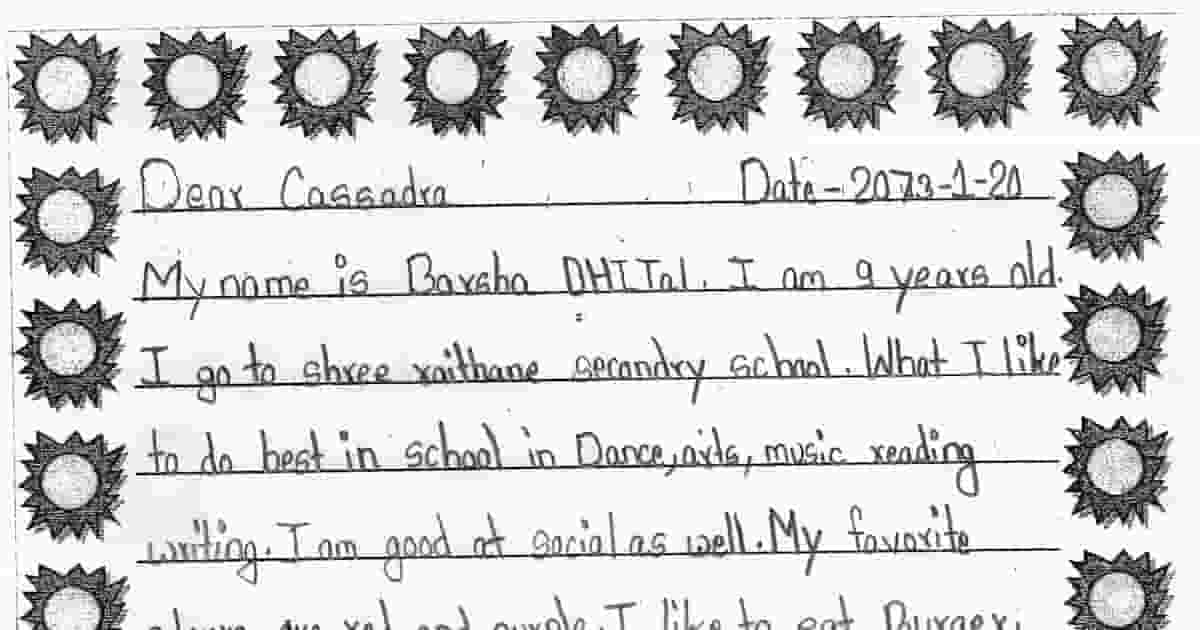 Dear Cassadra Date-2073-1-20
My name is Barsha DHITal. I am 9 years old.
I go to shree raithane secondry school. What I like
to do best in school in Dance, arts, music reading
writing. I am good at social as well. My favorite
are red and purple. I like to eat Burger.